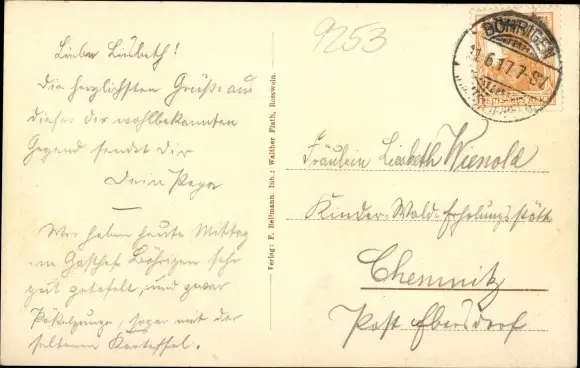 Liebe Lisbeth!
Die herzlichsten Grüße aus
dieser dir wohlbekannten
Gegend sendet dir
Dein Papa
Wir haben heute Mittag
im Gasthof Böhrigen sehr
gut getafelt, und zwar
Pökelzunge, sogar mit der
seltenen Kartoffel.
Verlag: F. Hellmann. Inh.: Walther Plath, Rosswein.
9253
BÖHRIGEN
11.6.17.7-8V
Fräulein Lisbeth Wienold
Kinder-Wald-Erholungsstätte
Chemnitz
Post Ebersdorf